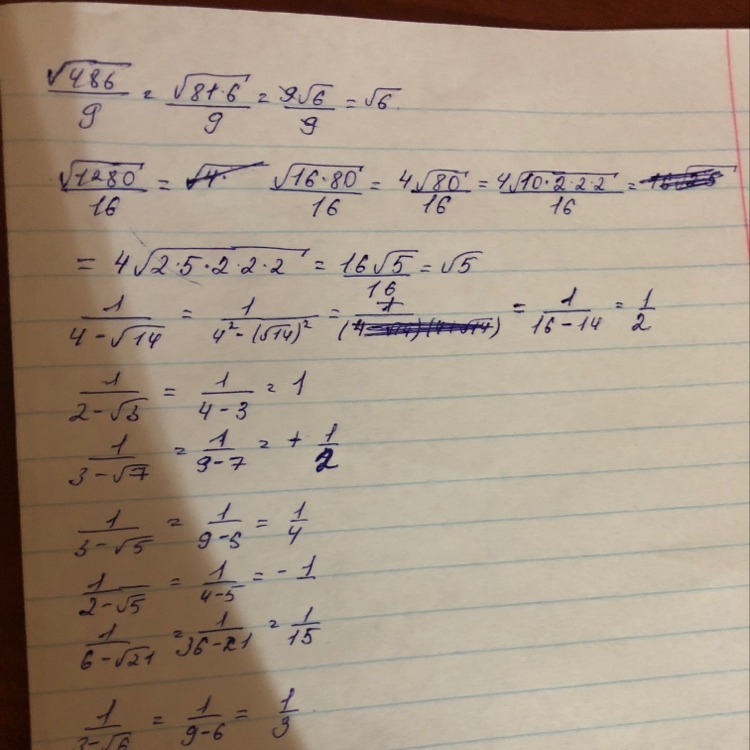 √486/9 = √81·6/9 = 9√6/9 = √6.
√1280/16 = √4· √16·80/16 = 4√80/16 = 4√10·2·2·2/16 =
= 4√2·5·2·2·2 = 16√5/16 = √5
1/4-√14 = 1/4²-(√14)² = 1/(4-√14)(4+√14) = 1/16-14 = 1/2
1/2-√3 = 1/4-3 = 1
1/3-√7 = 1/9-7 = + 1/2
1/3-√5 = 1/9-5 = 1/4
1/2-√5 = 1/4-5 = -1
1/6-√21 = 1/36-21 = 1/15
1/3-√6 = 1/9-6 = 1/3